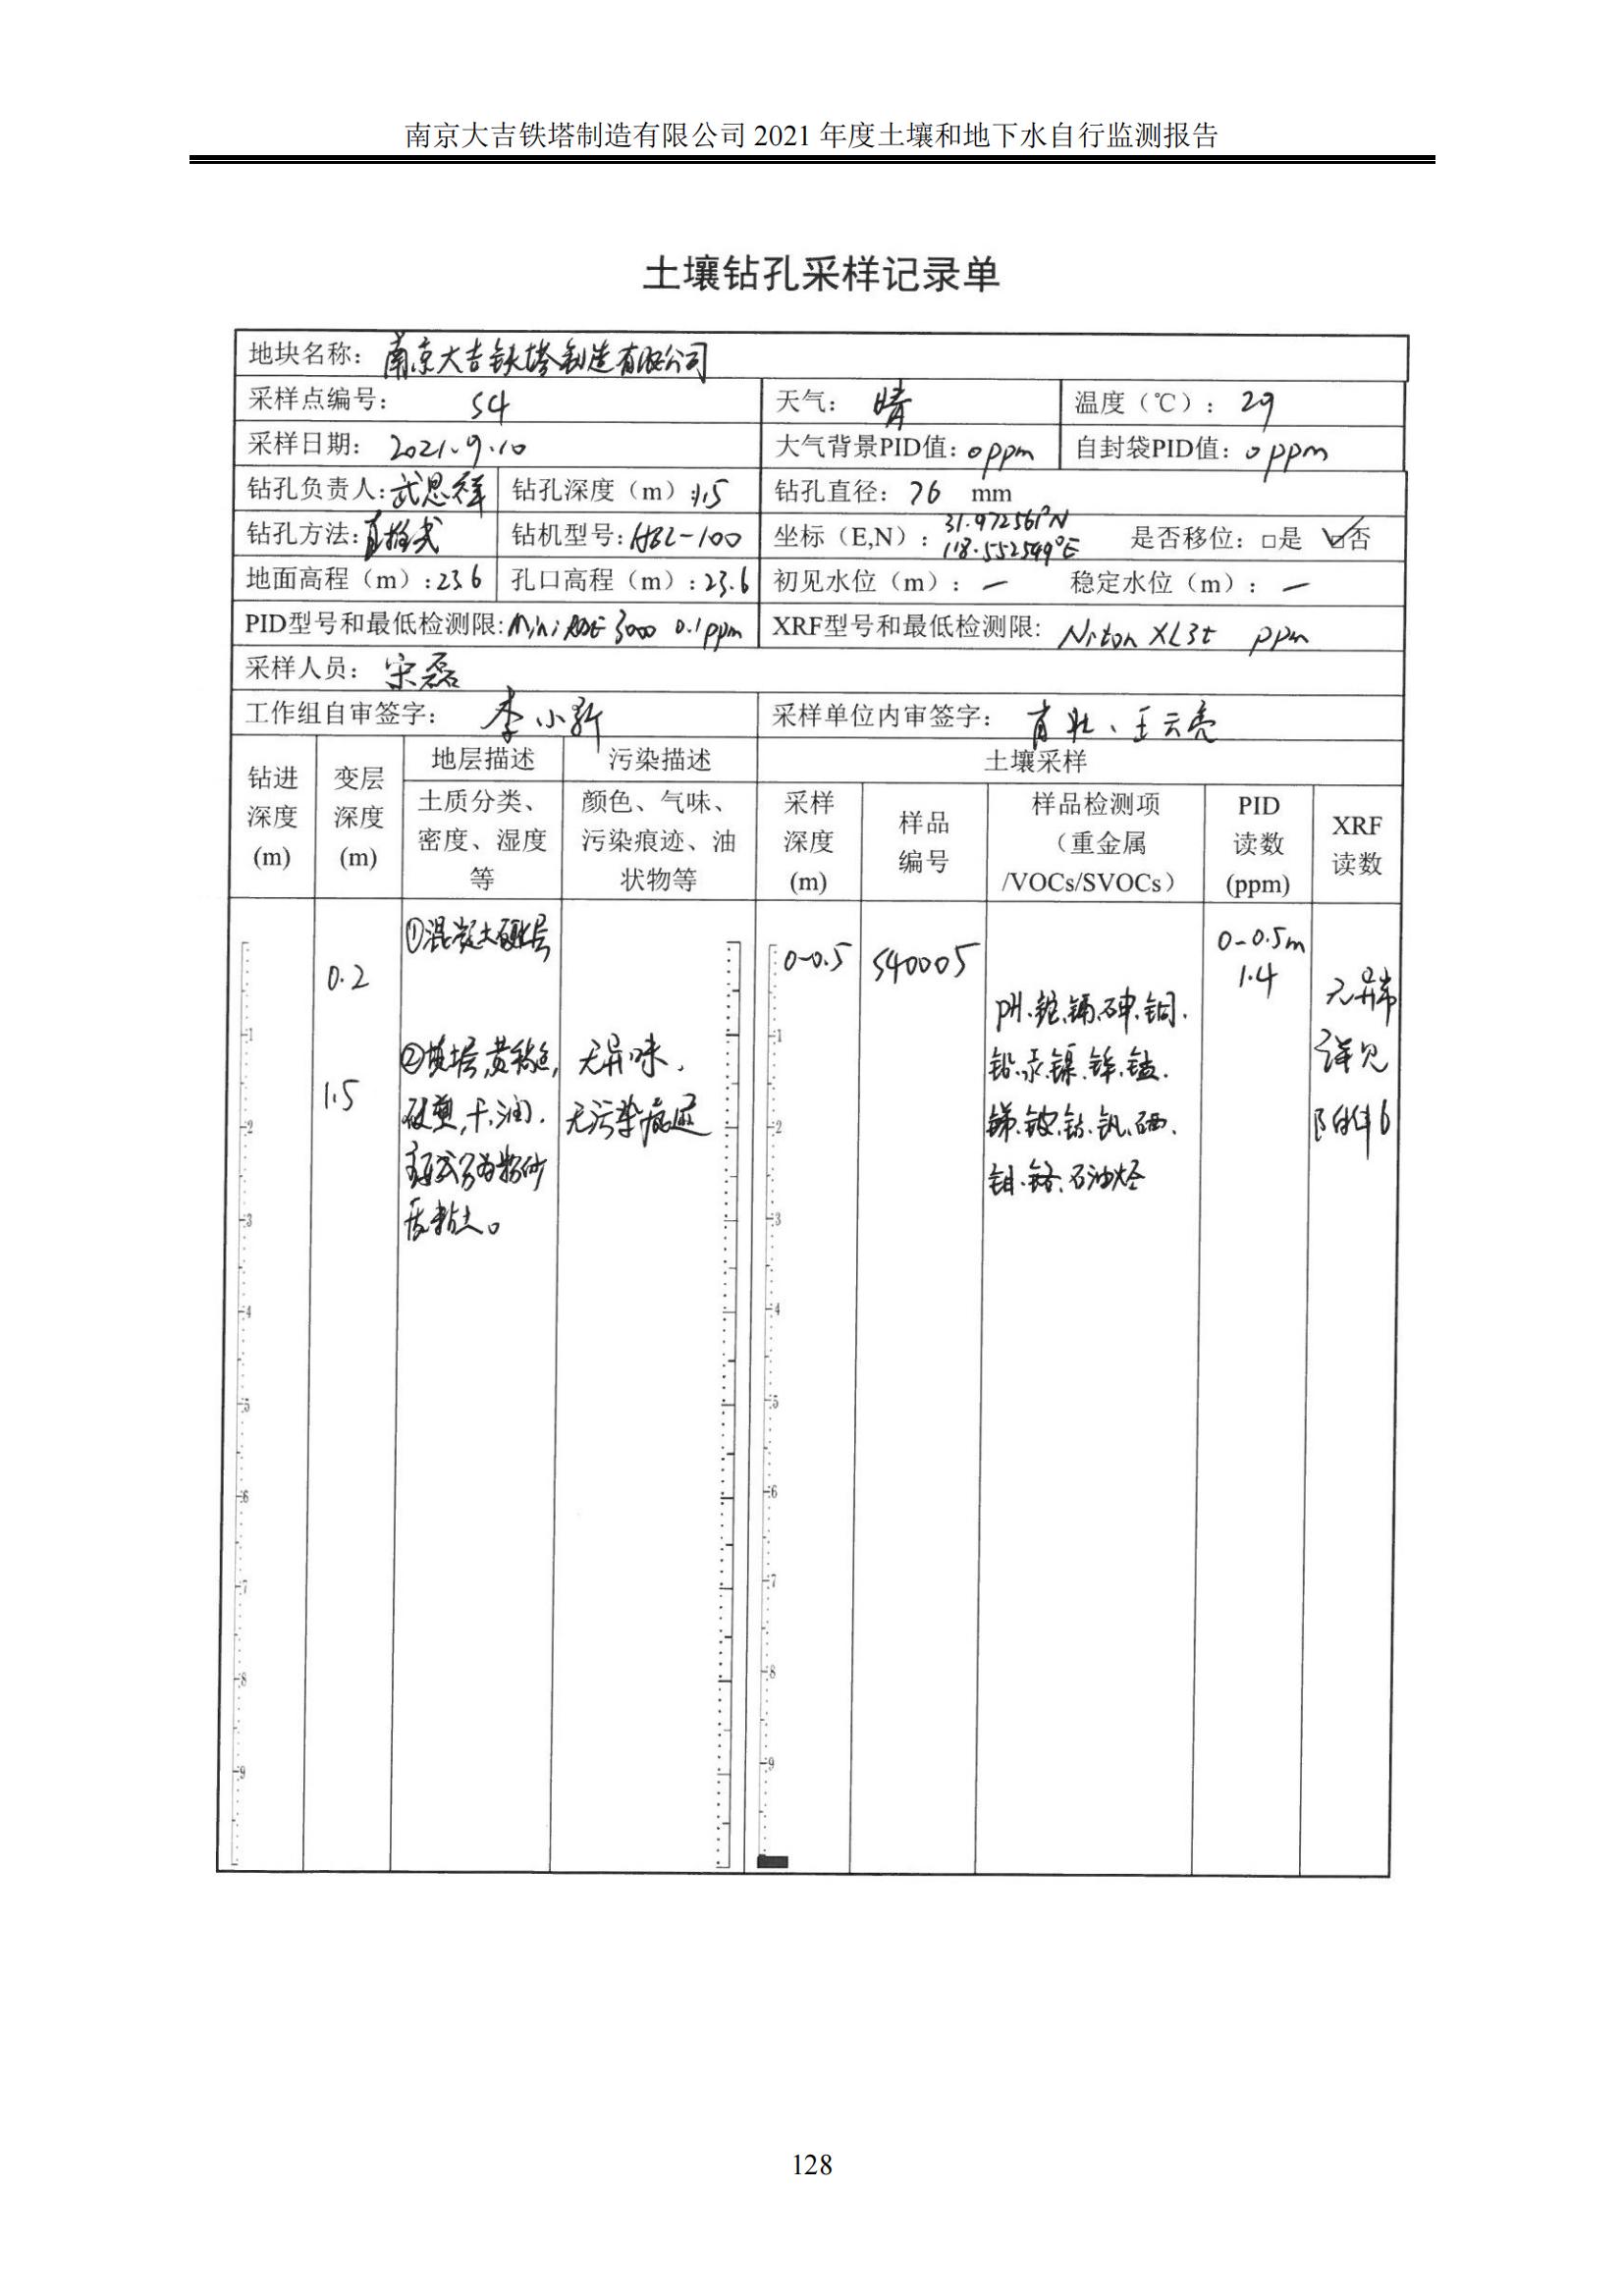 南京大吉铁塔制造有限公司 2021 年度土壤和地下水自行监测报告
土壤钻孔采样记录单
地块名称：南京大吉铁塔制造有限公司
采样点编号：S4 天气：晴 温度（℃）：29
采样日期：2021.9.10 大气背景PID值：0ppm 自封袋PID值：0ppm
钻孔负责人：武恩祥 钻孔深度（m）：1.5 钻孔直径：76 mm
钻孔方法：直推式 钻机型号：HBL-100 坐标（E,N）：31.972561°N 118.552549°E 是否移位：□是 ☑否
地面高程（m）：23.6 孔口高程（m）：23.6 初见水位（m）：— 稳定水位（m）：—
PID型号和最低检测限：MiniRAE 3000 0.1ppm XRF型号和最低检测限：Niton XL3t ppm
采样人员：宋磊
工作组自审签字：李小新 采样单位内审签字：肖壮、王云亮
钻进深度(m) 变层深度(m) 地层描述 污染描述 土壤采样
土质分类、密度、湿度等 颜色、气味、污染痕迹、油状物等 采样深度(m) 样品编号 样品检测项（重金属/VOCs/SVOCs） PID读数(ppm) XRF读数
①混凝土硬化层
0-0.5m
0.2 0-0.5 S40005 1.4
pH、铊、镉、砷、铜、
无异常
②黄褐色,
无异味、
铅、汞、镍、锌、锰、
详见
1.5 硬塑,干,润、
无污染痕迹
锑、铍、钴、钒、硒、
附件6
主要成分为粉砂
钼、铬、石油烃
质黏土。
1
2
3
4
5
6
7
8
9
1
2
3
4
5
6
7
8
9
128